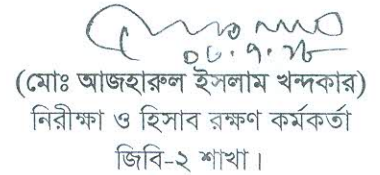 (মোঃ আজহারুল ইসলাম খন্দকার)
নিরীক্ষা ও হিসাব রক্ষণ কর্মকর্তা
জিবি-২ শাখা।